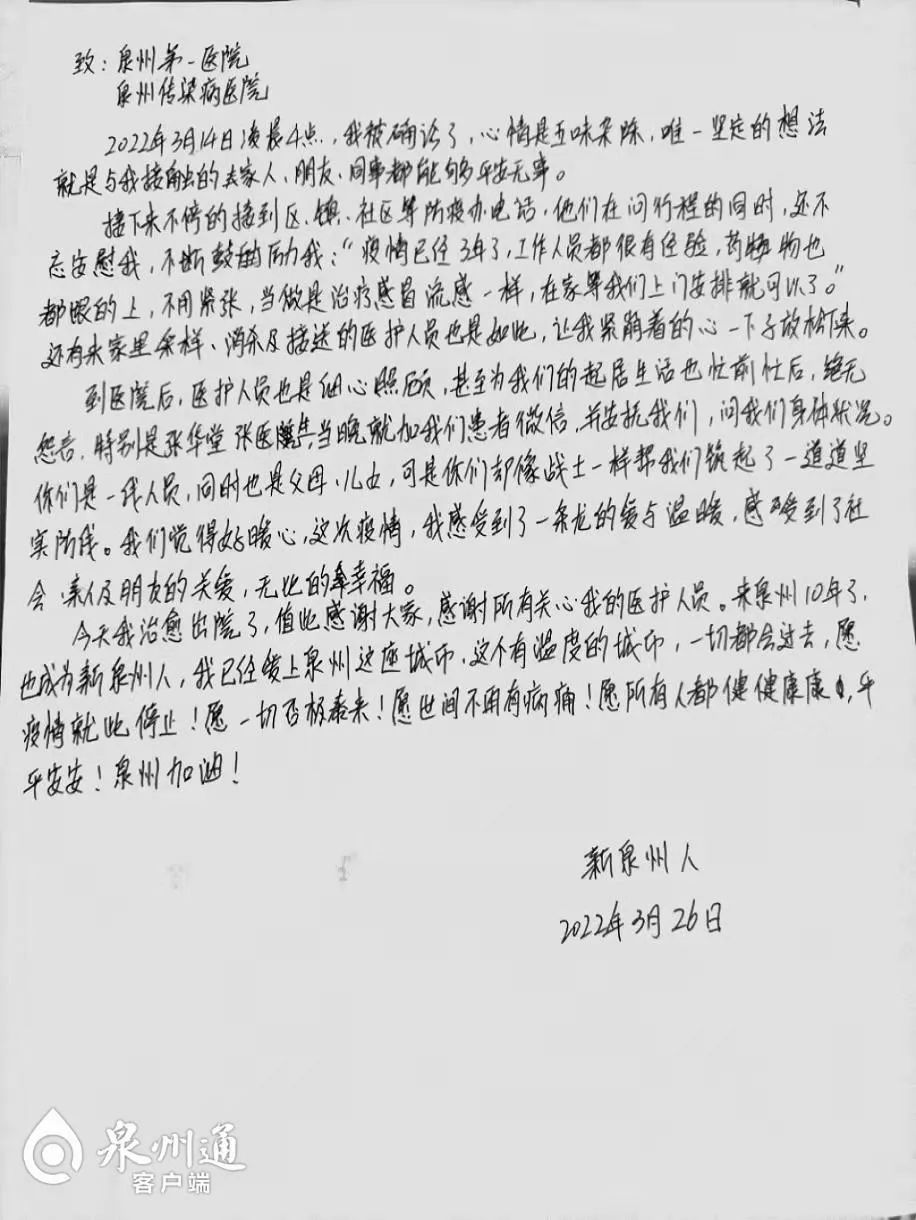 致：泉州第一医院
泉州传染病医院
2022年3月14日凌晨4点，我被确诊了，心情是五味杂陈，唯一坚定的想法
就是与我接触的家人、朋友、同事都能够平安无事。
接下来不停的接到区、镇、社区等防疫办电话，他们在问行程的同时，还不
忘安慰我，不断鼓励我：“疫情已经3年了，工作人员都很有经验，药物也
都跟的上，不用紧张，当做是治疗感冒流感一样，在家等我们上门安排就可以了。”
还有来家里采样、消杀及接送的医护人员也是如此，让我紧崩着的心一下子放松下来。
到医院后，医护人员也是细心照顾，甚至为我们的起居生活也忙前忙后，绝无
怨言，特别是张华堂 张医生，当晚就加我们患者微信，并安抚我们，问我们身体状况。
你们是一线人员，同时也是父母、儿女，可是你们却像战士一样帮我们筑起了一道道坚
实防线。我们觉得好暖心，这次疫情，我感受到了一条龙的爱与温暖，感受到了社
会、亲人及朋友的关爱，无比的幸福。
今天我治愈出院了，值此感谢大家，感谢所有关心我的医护人员。来泉州10年了，
也成为新泉州人，我已经爱上泉州这座城市，这个有温度的城市，一切都会过去，愿
疫情就此停止！愿一切否极泰来！愿世间不再有病痛！愿所有人都健健康康，平
平安安！泉州加油！
新泉州人
2022年3月26日
泉州通
客户端